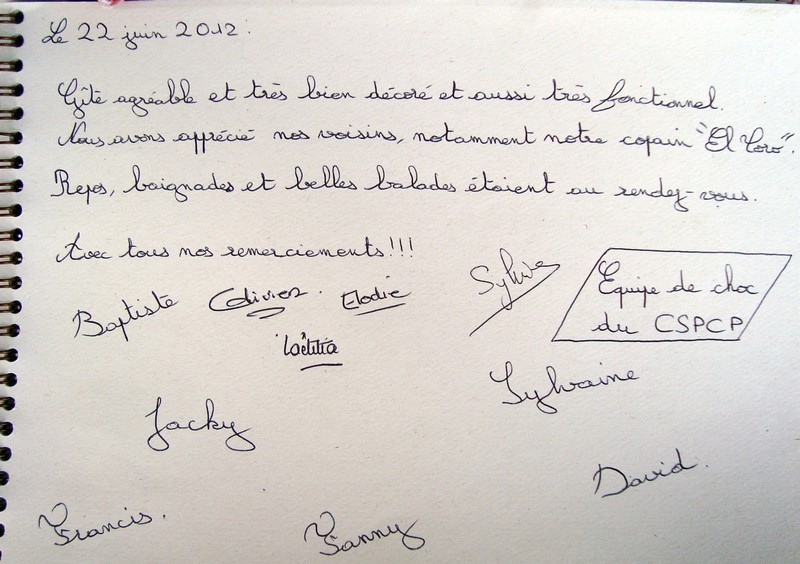 Le 22 juin 2012.
Gîte agréable et très bien décoré et aussi très fonctionnel.
Nous avons apprécié nos voisins, notamment notre copain "El Toro".
Repos, baignades et belles balades étaient au rendez-vous.
Avec tous nos remerciements!!!
Equipe de choc
du CSPCP
Baptiste Olivier. Elodie Sylvie
Laëtitia
Sylvaine
Jacky
David.
Francis. Fanny